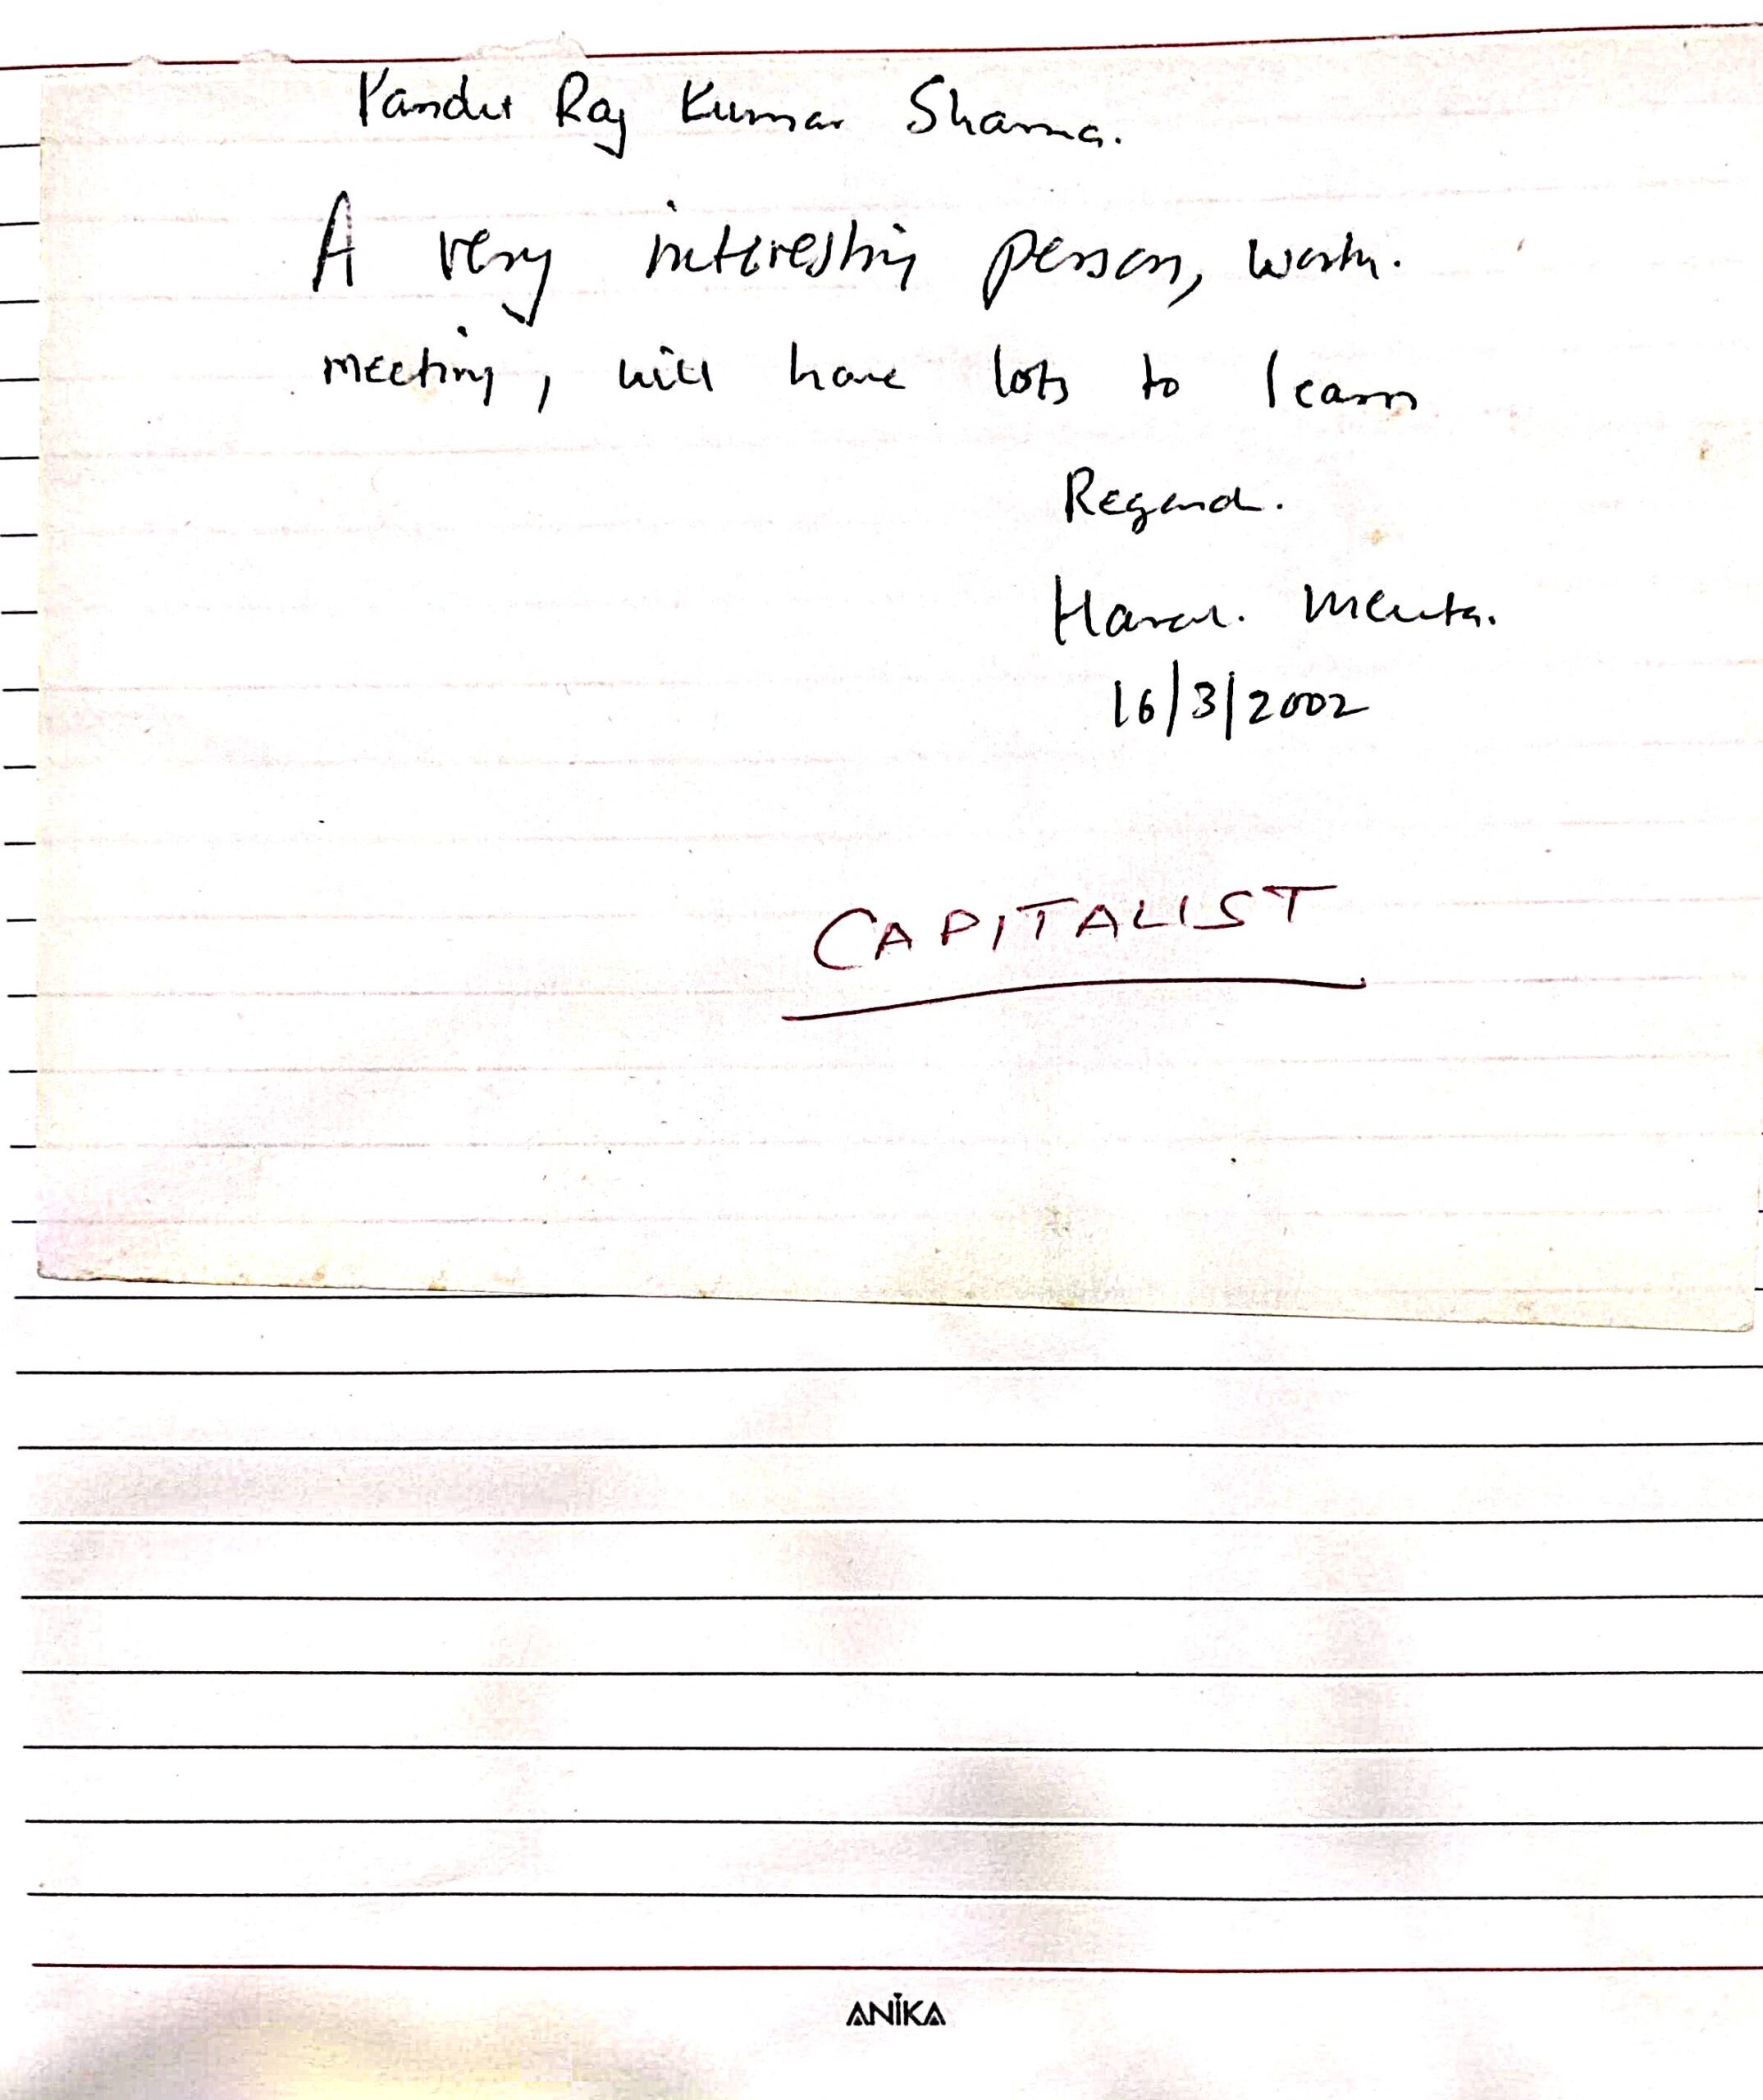 Pandit Raj Kumar Sharma.
A very interesting person, worth.
meeting, will have lots to learn
Regard.
Mehta.
16/3/2002
CAPITALIST
ANIKA